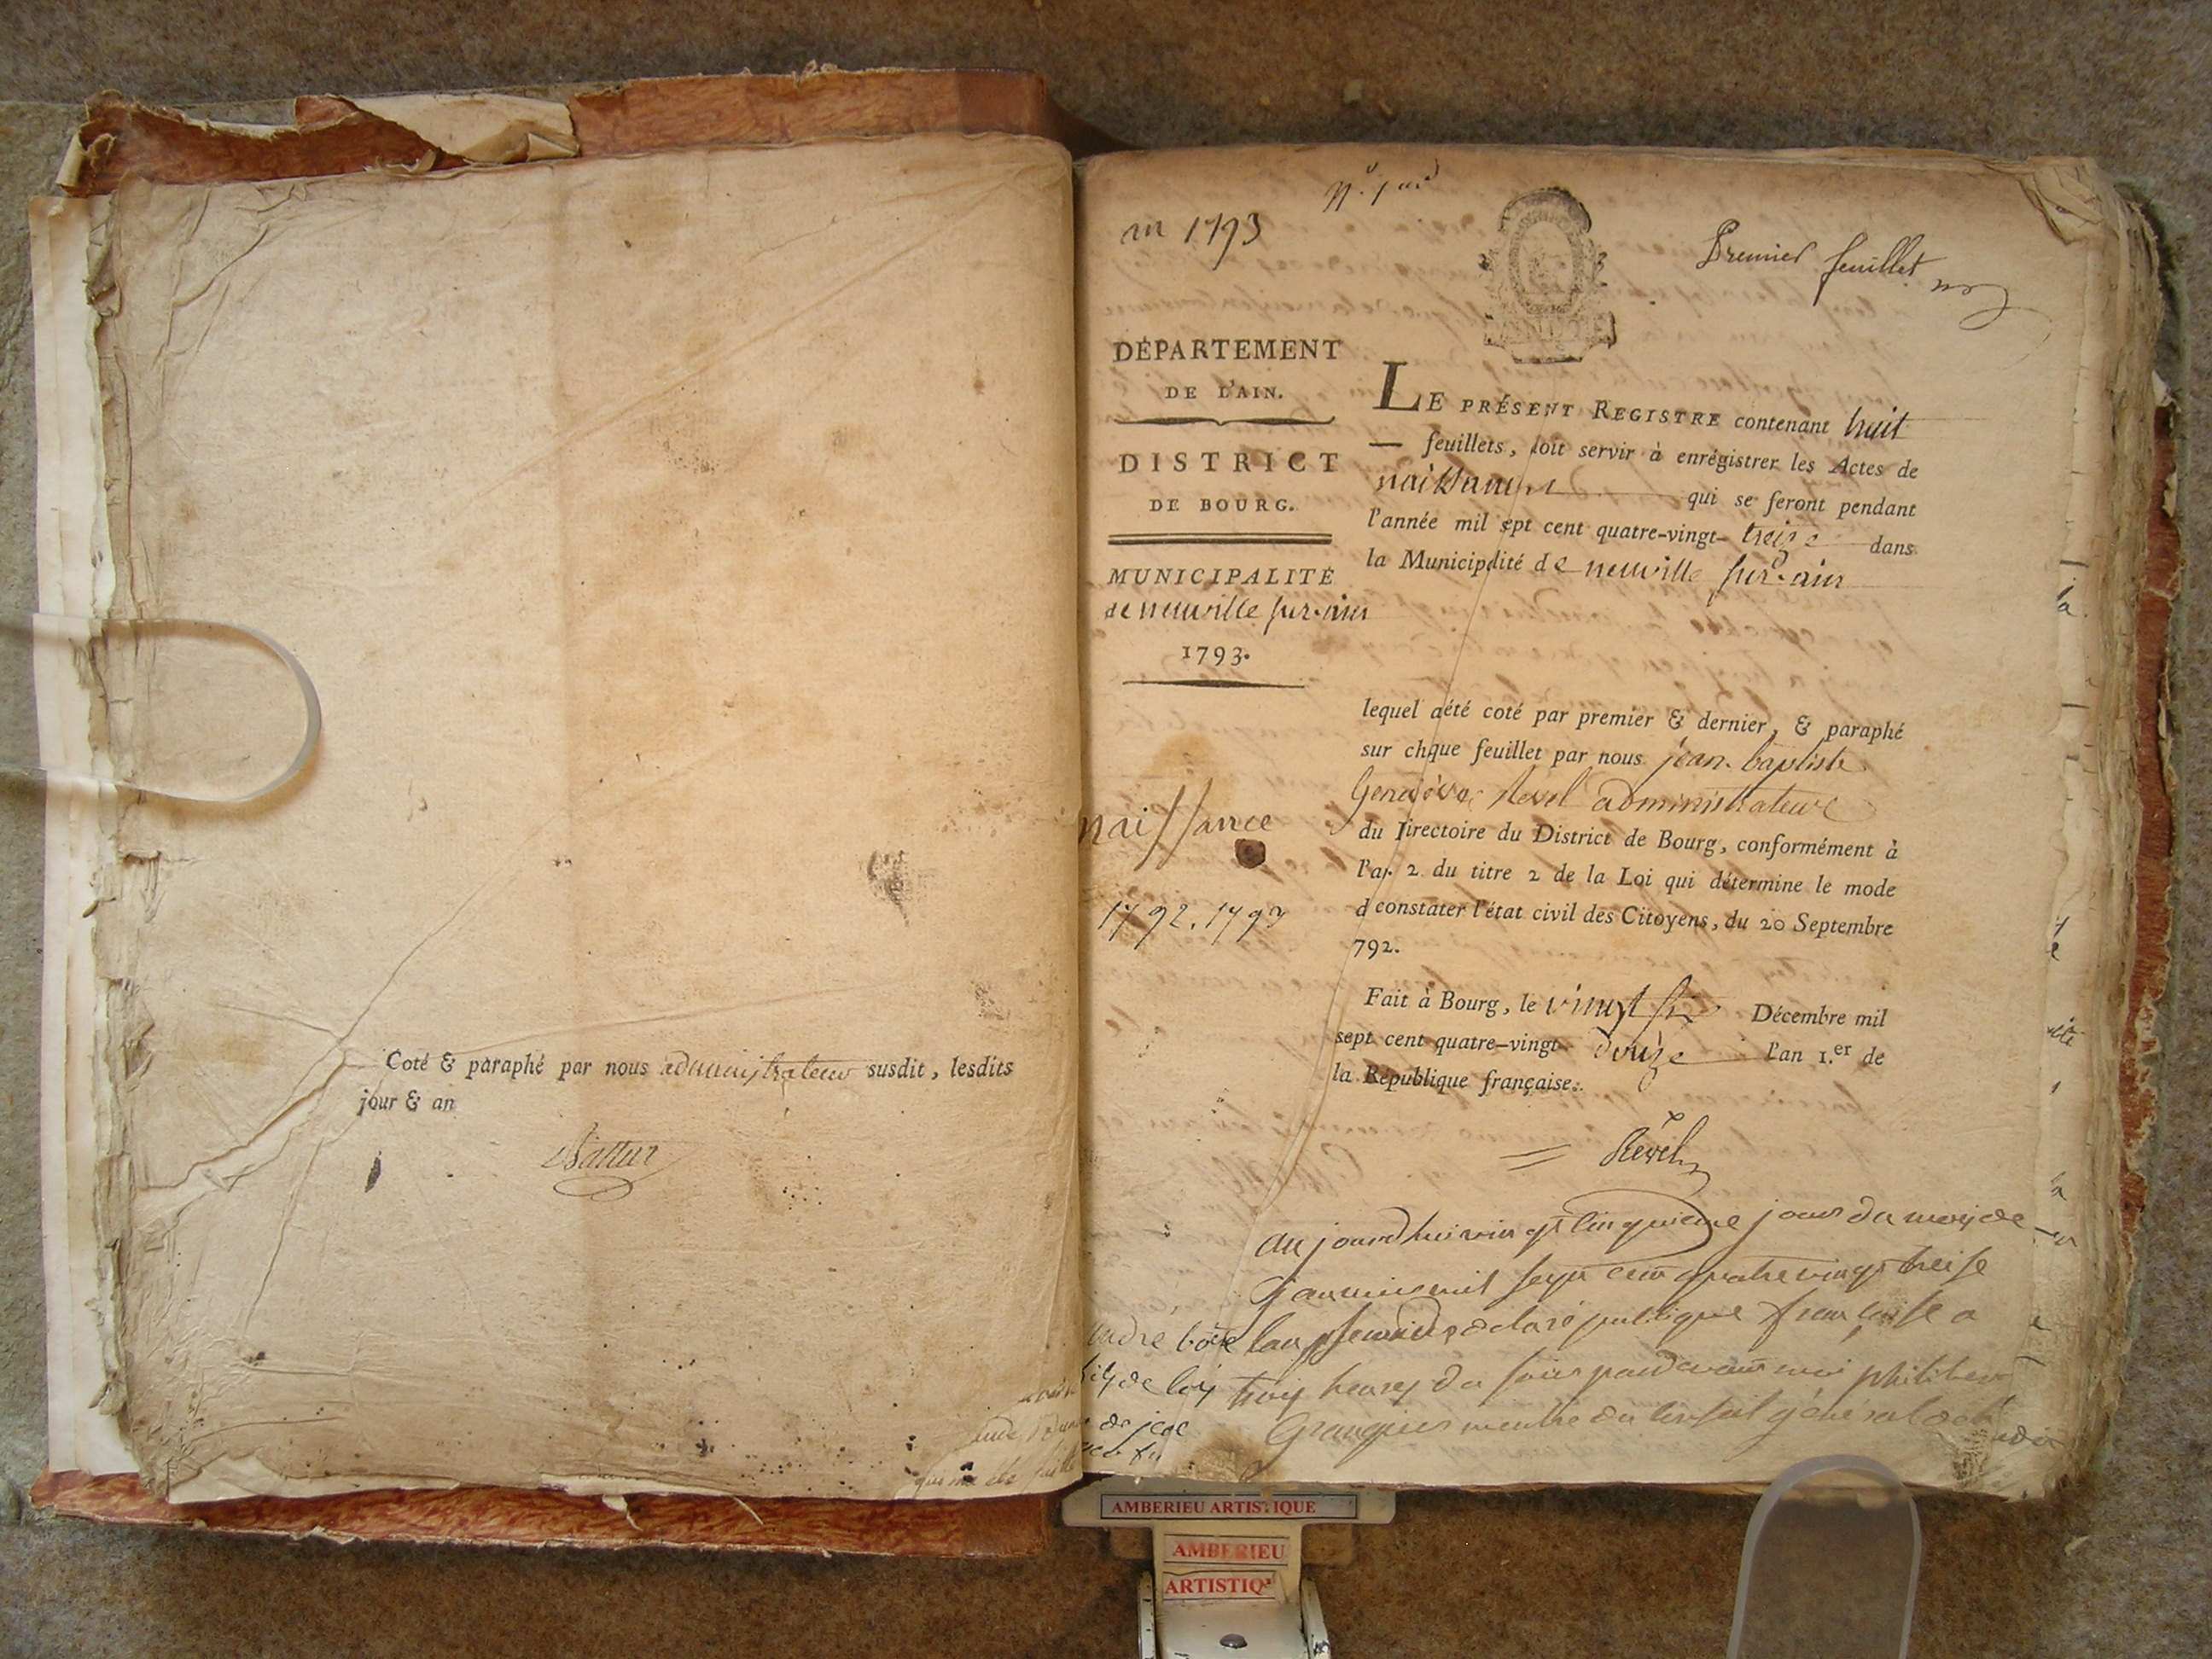 Coté & paraphé par nous administrateur susdit, lesdits
jour & an
an 1793
Premier feuillet
DÉPARTEMENT
DE L'AIN.
DISTRICT
DE BOURG.
MUNICIPALITÉ
de neuville sur-ain
1793.
naissance
1792. 1793
LE PRÉSENT REGISTRE contenant huit
— feuillets, doit servir à enrégistrer les Actes de
naissance qui se feront pendant
l'année mil sept cent quatre-vingt- treize dans
la Municipalité de neuville sur-ain
lequel a été coté par premier & dernier, & paraphé
sur chque feuillet par nous jean-baptiste
Revel administrateur
du Directoire du District de Bourg, conformément à
l'a. 2 du titre 2 de la Loi qui détermine le mode
d constater l'état civil des Citoyens, du 20 Septembre
792.
Fait à Bourg, le vingt six Décembre mil
sept cent quatre-vingt- douze l'an 1.er de
la République française.
Revel
aujourdhui vingt cinquieme jour du mois de
janvier mil sept cent quatre vingt treise
lan second de la republique francaise a
trois heures du soir pardevant moi philibert
Grangier membre du conseil général de la
AMBERIEU ARTISTIQUE
AMBERIEU
ARTISTIQ